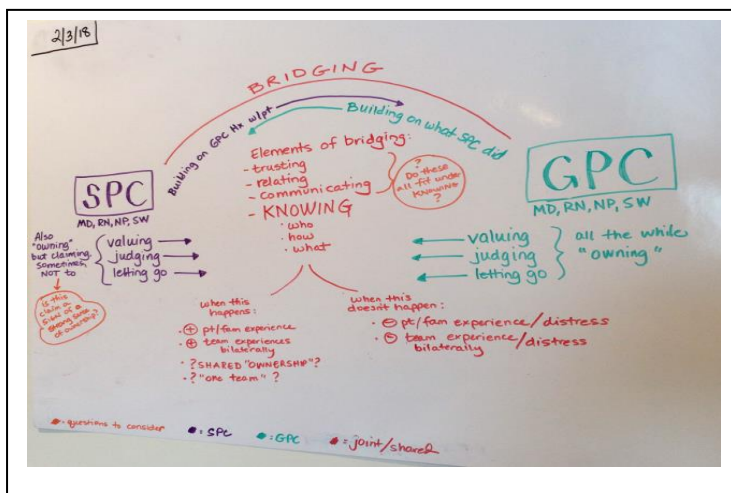 2/3/18
BRIDGING
Building on GPC Hx w/pt
Building on what SPC did
Elements of bridging:
- trusting
- relating
- communicating
- KNOWING
· who
· how
· what
?
Do these
all fit under
KNOWING
?
SPC
MD, RN, NP, SW
Also
"owning"
but claiming
sometimes
NOT to
valuing
judging
letting go
Is this
claim a
sign of a
strong sense
of ownership?
GPC
MD, RN, NP, SW
valuing
judging
letting go
all the while
"owning"
when this
happens:
· ⊕ pt/fam experience
· ⊕ team experiences
bilaterally
· ?SHARED "OWNERSHIP"?
· ?"one team"?
when this
doesn't happen:
· ⊖ pt/fam experience/distress
· ⊖ team experience/distress
bilaterally
= questions to consider
= SPC
= GPC
= joint/shared